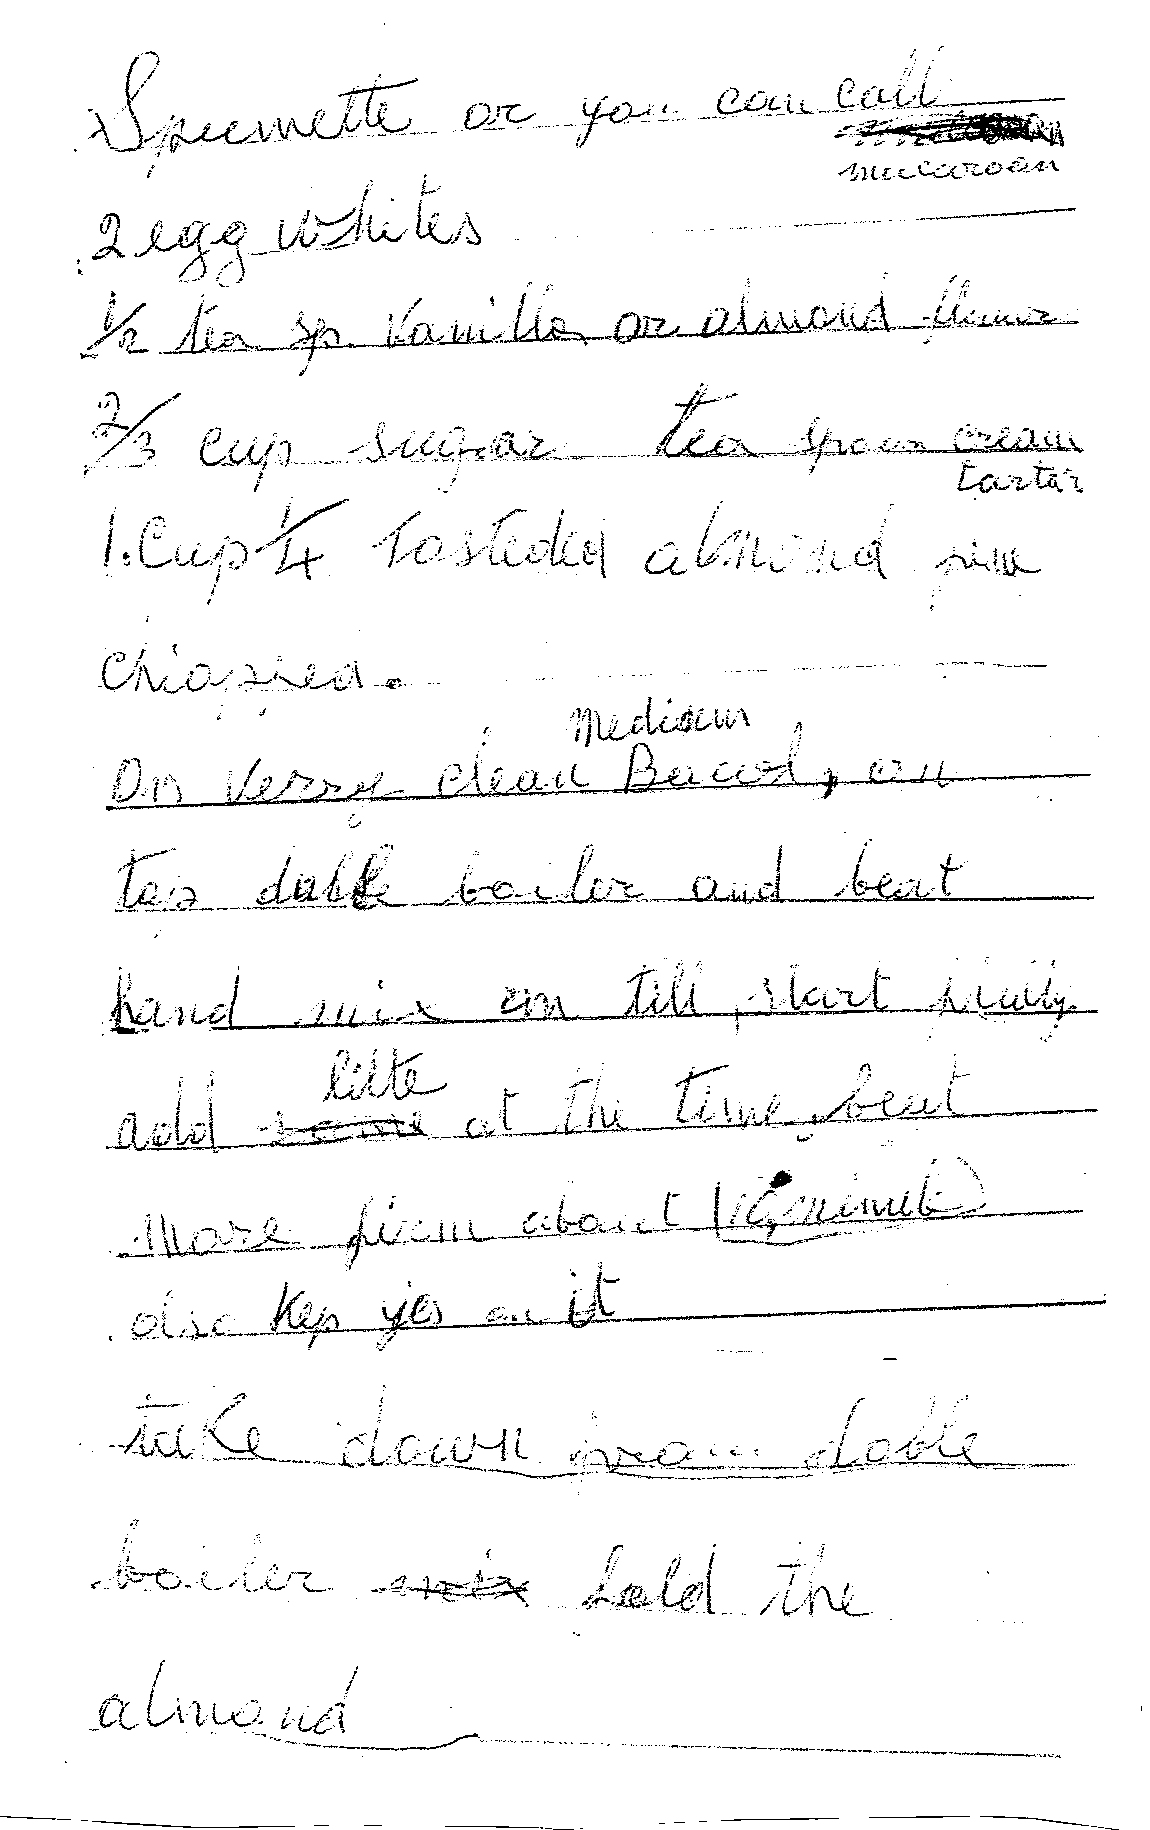 Spumette or you can call
mucaroan
2 egg whites
1/2 tea sp. Vanilla or almond flavor
2/3 cup sugar tea spoon cream
tartar
1.Cup 1/4 tosteded almond fine
chiopped.
Medium
On Verry clean Bawol, on
top doble boiler and beat
hand mix on till start fluffy
litte
add some at the time, beat
More firm about minute
also Kep yes on it
take down from doble
boiler mix fold the
almond